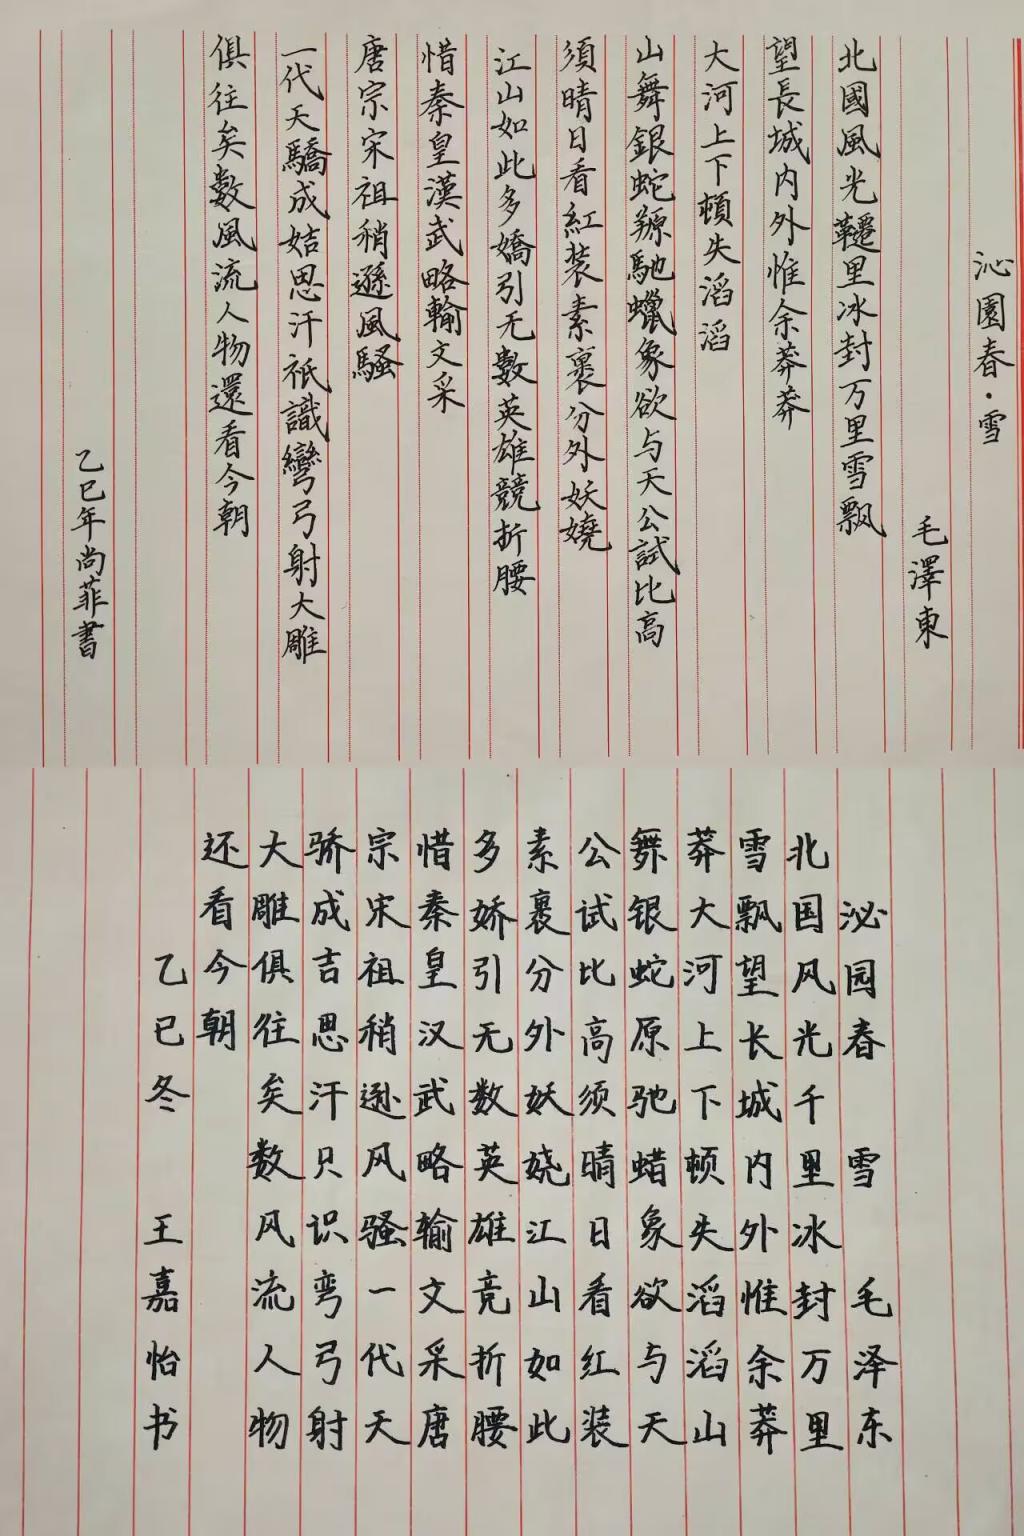 沁園春·雪
毛澤東
北國風光韆里冰封万里雪飘
望長城内外惟余莽莽
大河上下頓失滔滔
山舞銀蛇羱馳蠟象欲与天公試比高
須晴日看紅装素裹分外妖嬈
江山如此多嬌引无數英雄競折腰
惜秦皇漢武略輸文采
唐宗宋祖稍遜風騷
一代天驕成姞思汗祇識彎弓射大雕
俱往矣數風流人物還看今朝
乙巳年尚菲書
沁园春 雪 毛泽东
北国风光千里冰封万里
雪飘望长城内外惟余莽
莽大河上下顿失滔滔山
舞银蛇原驰蜡象欲与天
公试比高须晴日看红装
素裹分外妖娆江山如此
多娇引无数英雄竞折腰
惜秦皇汉武略输文采唐
宗宋祖稍逊风骚一代天
骄成吉思汗只识弯弓射
大雕俱往矣数风流人物
还看今朝
乙巳冬 王嘉怡书